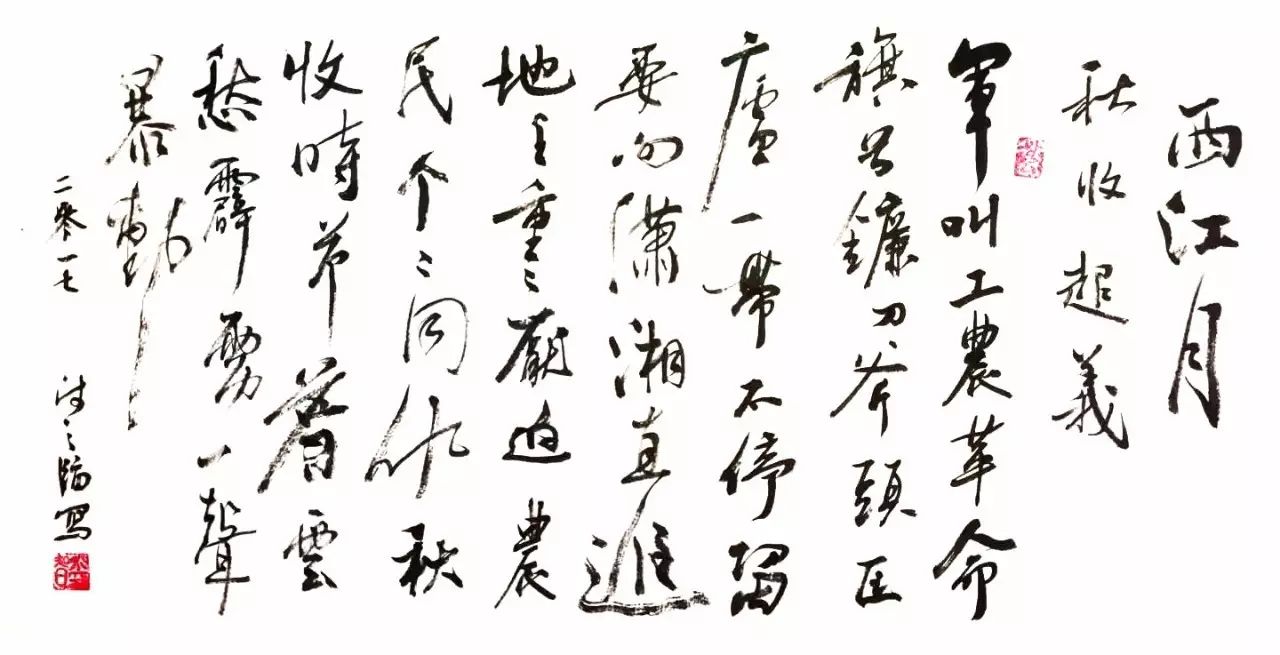 西江月
秋收起義
軍叫工農革命
旗号鐮刀斧頭匡
廬一帶不停留
要向瀟湘直進
地主重〻壓迫農
民个〻同仇秋
收時節暮雲
愁霹靂一聲
暴動
二零一七 臨寫